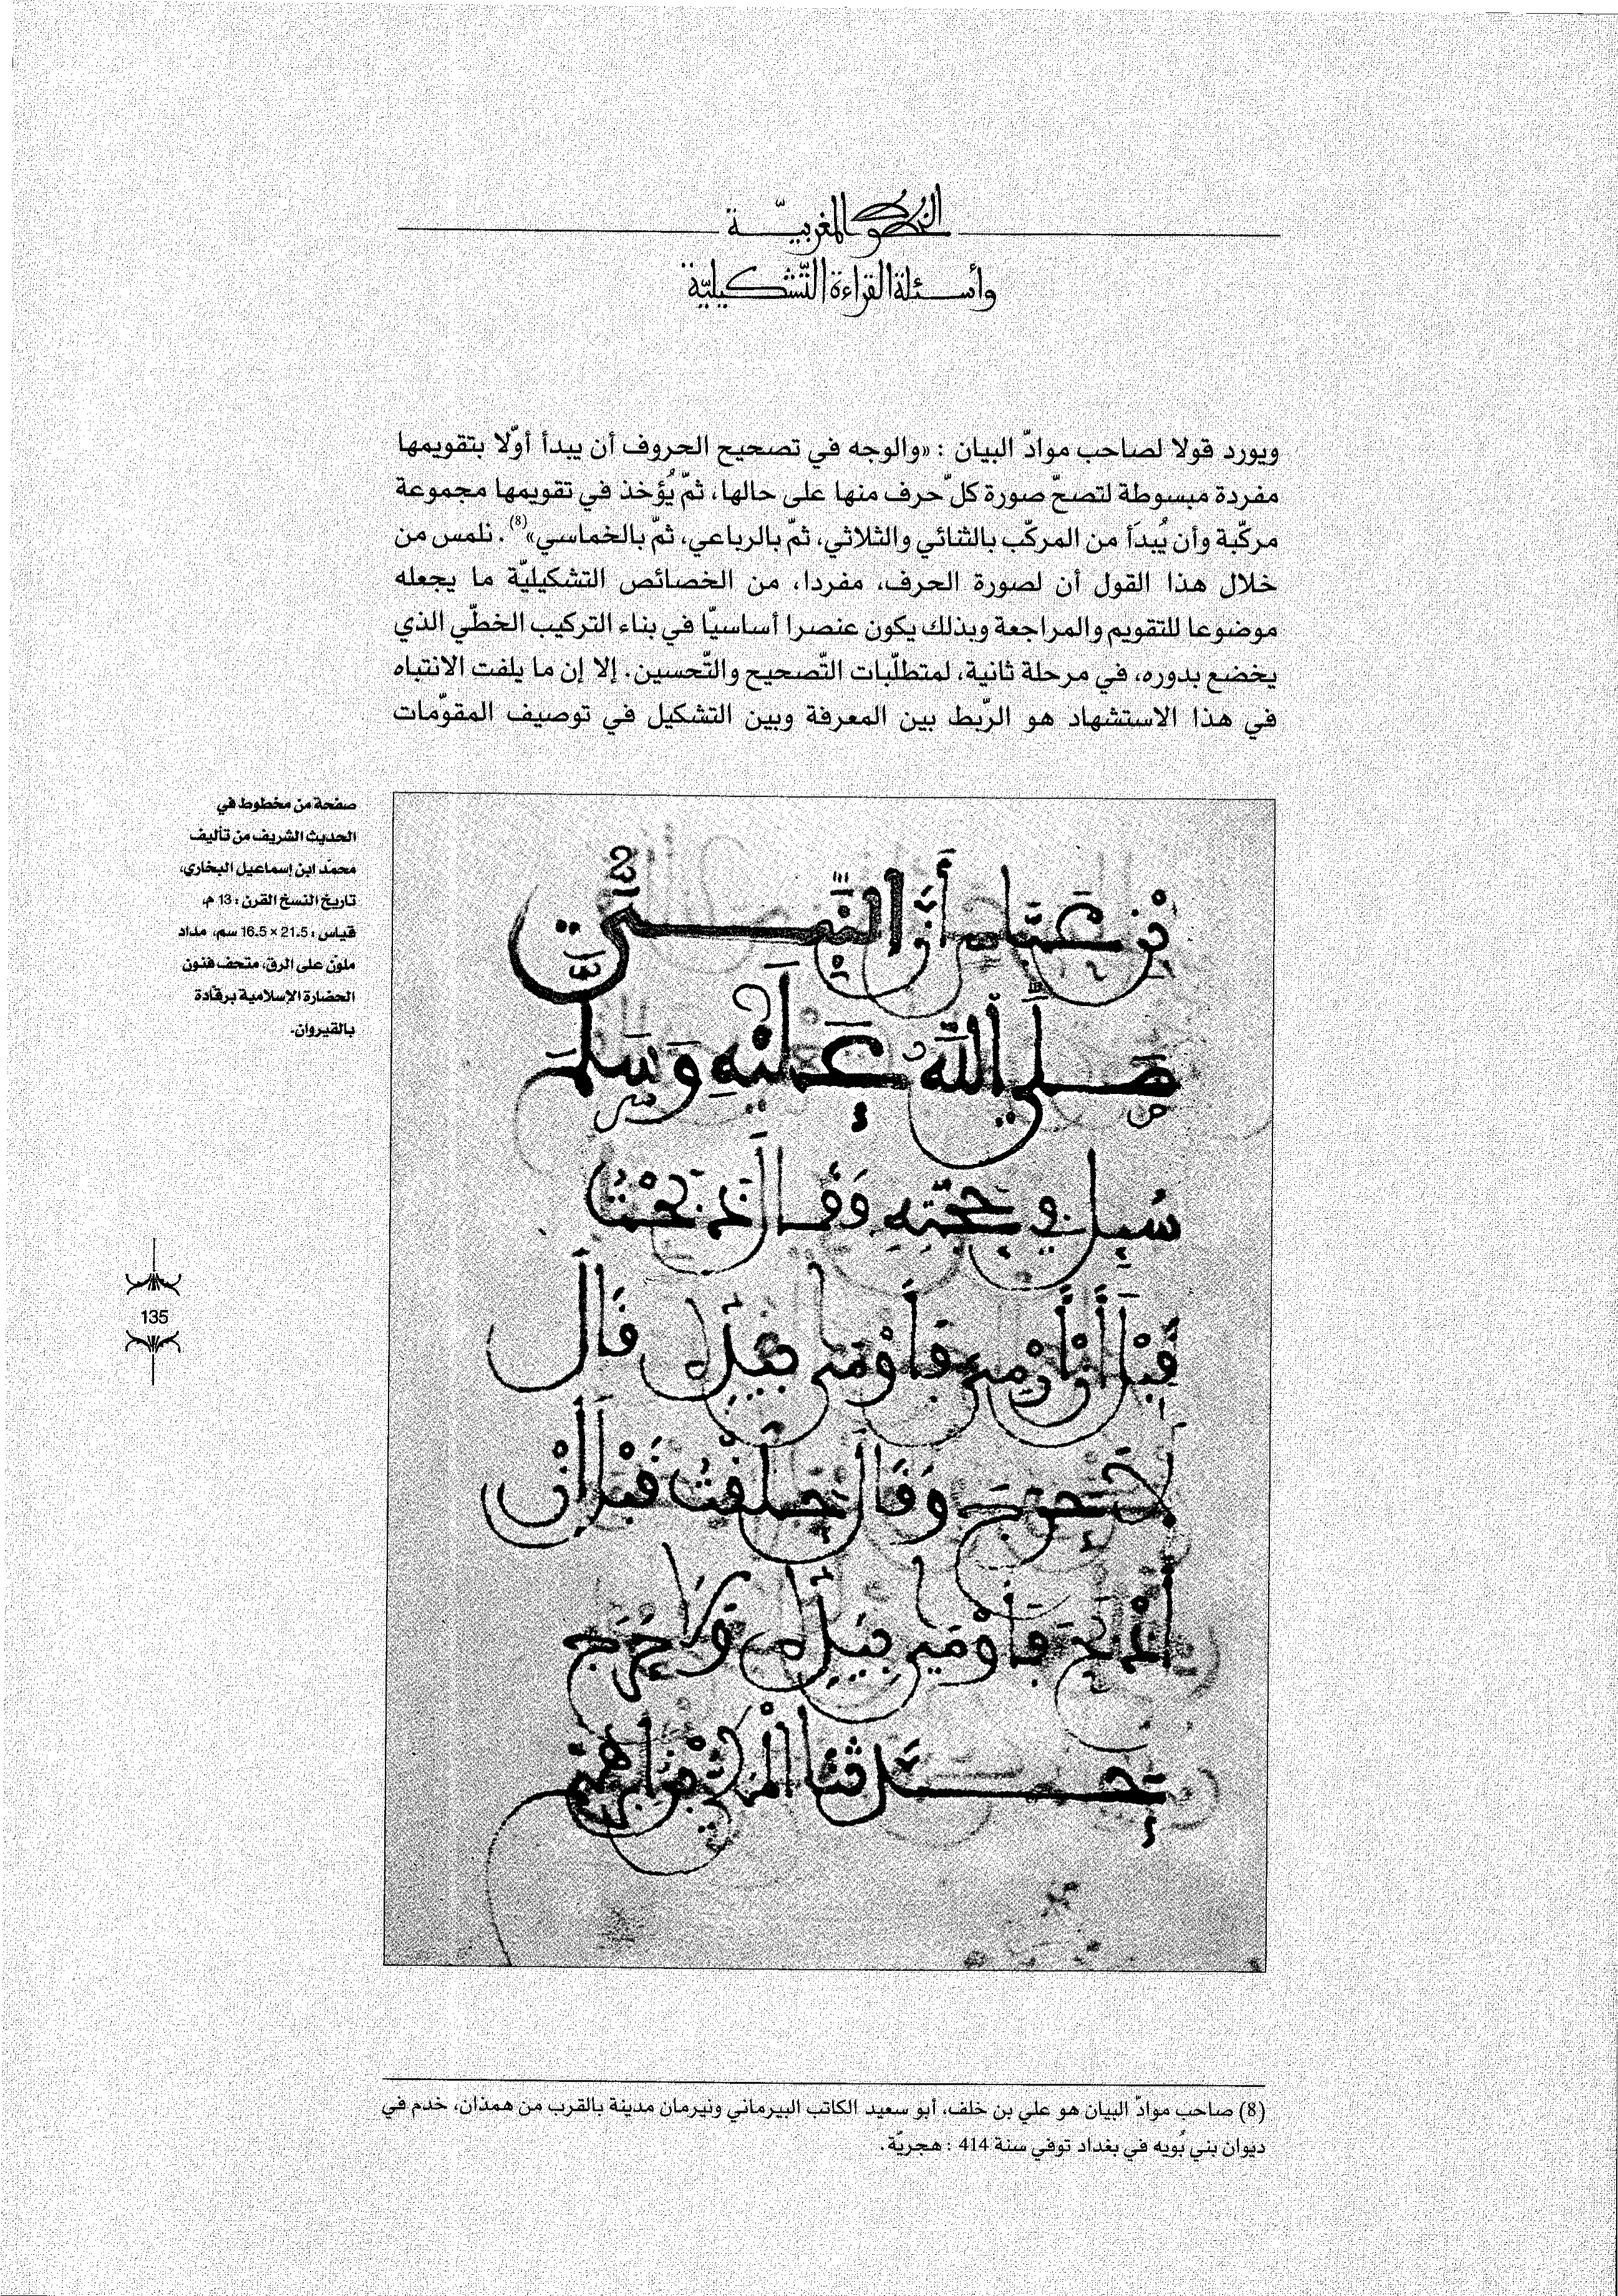 الخطوط المغربيّة
وأسئلة القراءة التّشكيليّة
ويورد قولا لصاحب موادّ البيان : «والوجه في تصحيح الحروف أن يبدأ أوّلا بتقويمها
مفردة مبسوطة لتصحّ صورة كلّ حرف منها على حالها، ثمّ يُؤخذ في تقويمها مجموعة
مركّبة وأن يُبدَأ من المركّب بالثنائي والثلاثي، ثمّ بالرباعي، ثمّ بالخماسي»(8). نلمس من
خلال هذا القول أن لصورة الحرف، مفردا، من الخصائص التشكيليّة ما يجعله
موضوعا للتقويم والمراجعة وبذلك يكون عنصرا أساسيّا في بناء التركيب الخطّي الذي
يخضع بدوره، في مرحلة ثانية، لمتطلّبات التّصحيح والتّحسين. إلا إن ما يلفت الانتباه
في هذا الاستشهاد هو الرّبط بين المعرفة وبين التشكيل في توصيف المقوّمات
صفحة من مخطوط في
الحديث الشريف من تأليف
محمّد ابن إسماعيل البخاري،
تاريخ النسخ القرن : 13 م،
قياس : 21.5 × 16.5 سم، مداد
ملوّن على الرق، متحف فنون
الحضارة الإسلامية برقّادة
بالقيروان.
بن عباس أن النبي
صلى الله عليه وسلم
سئل في حجته وقال ذبحت
قبل أن أرمي فأومى بيده قال
لا حرج وقال حلقت قبل أن
أذبح فأومى بيده ولا حرج
حدثنا المكي بن إبراهيم
135
(8) صاحب موادّ البيان هو علي بن خلف، أبو سعيد الكاتب البيرماني ونيرمان مدينة بالقرب من همذان، خدم في
ديوان بني بُويه في بغداد توفي سنة 414 : هجريّة.